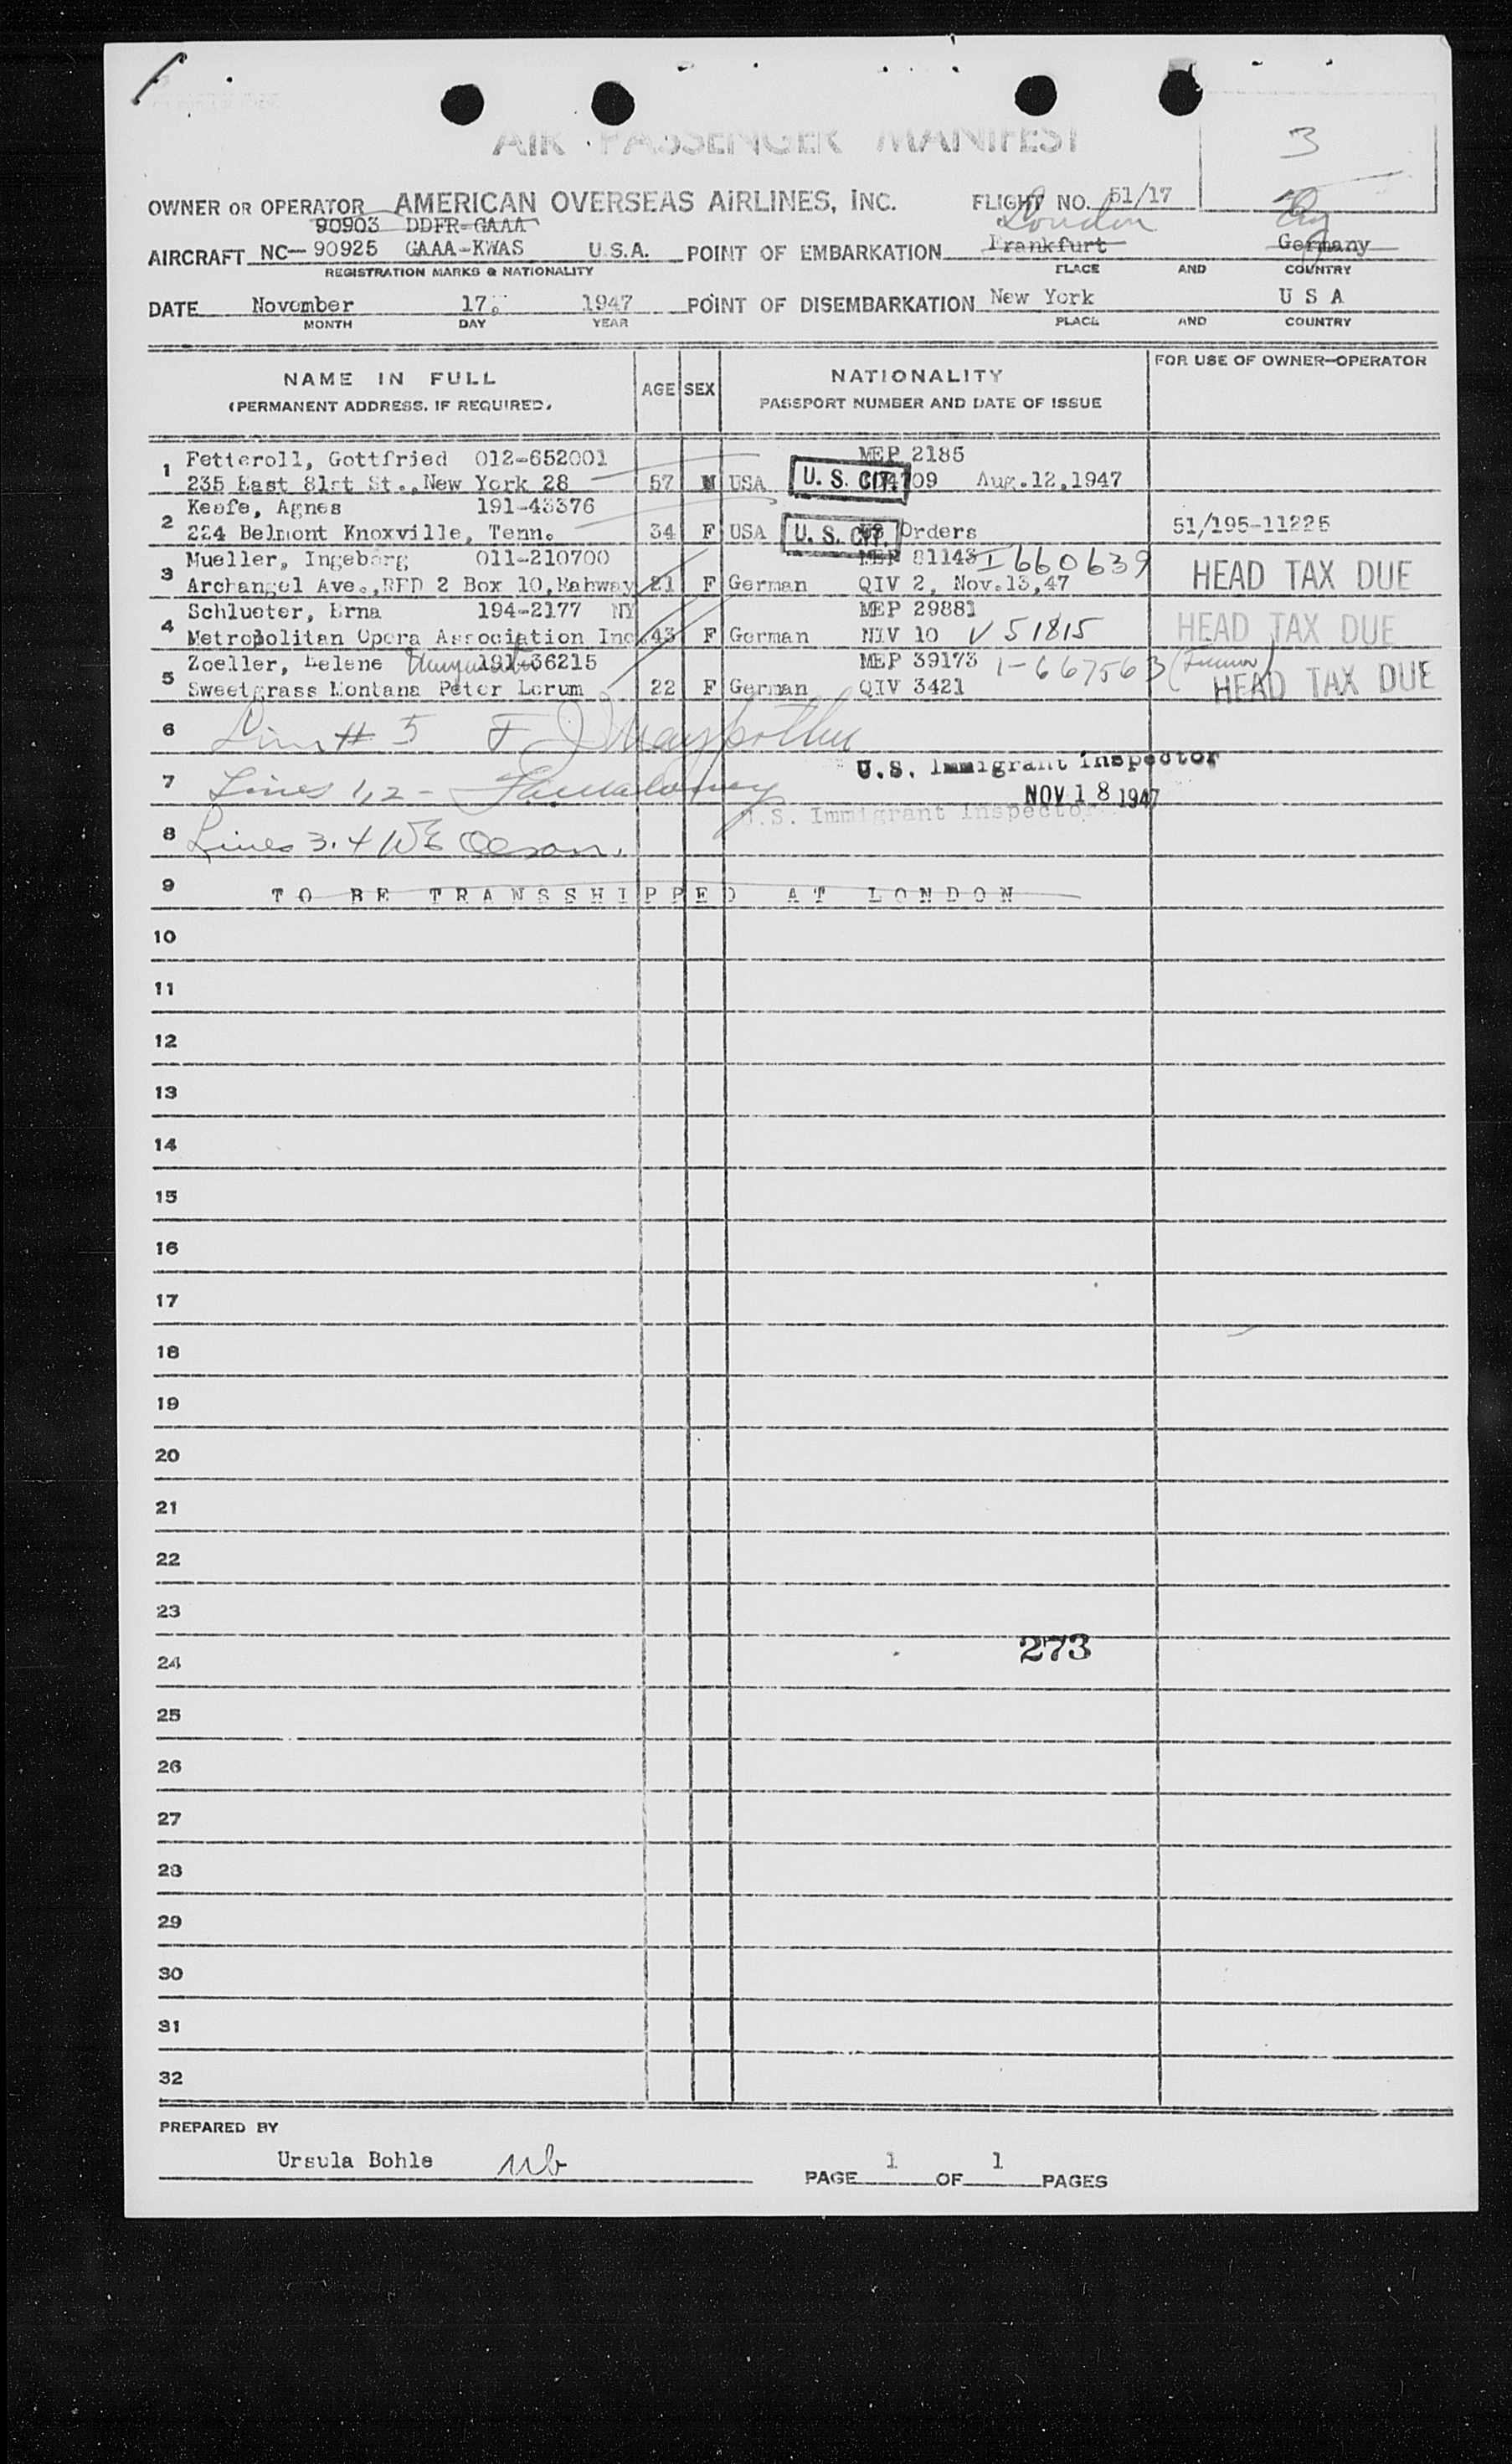 AIR PASSENGER MANIFEST
3
OWNER OR OPERATOR AMERICAN OVERSEAS AIRLINES, INC. FLIGHT NO. 51/17
90903 DDFR-GAAA London Eng
AIRCRAFT NC- 90925 GAAA-KWAS U.S.A. POINT OF EMBARKATION Frankfurt Germany
REGISTRATION MARKS & NATIONALITY PLACE AND COUNTRY
DATE November 17. 1947 POINT OF DISEMBARKATION New York U S A
MONTH DAY YEAR PLACE AND COUNTRY
NAME IN FULL
(PERMANENT ADDRESS, IF REQUIRED)
AGE SEX
NATIONALITY
PASSPORT NUMBER AND DATE OF ISSUE
FOR USE OF OWNER-OPERATOR
1 Fetteroll, Gottfried 012-652001 MEP 2185
235 East 81st St., New York 28 57 M USA U. S. CIT. 709 Aug.12,1947
2 Keefe, Agnes 191-43376
224 Belmont Knoxville, Tenn. 34 F USA U. S. CIT. Orders 51/195-11225
3 Mueller, Ingeborg 011-210700 MEP 81143 I 660639
Archangel Ave.,RFD 2 Box 10,Rahway 21 F German QIV 2, Nov.13,47 HEAD TAX DUE
4 Schlueter, Erna 194-2177 NY MEP 29881
Metropolitan Opera Association Inc. 43 F German NIV 10 V 51815 HEAD TAX DUE
5 Zoeller, Helene 191-36215 MEP 39173 I-667563
Sweetgrass Montana Peter Lorum 22 F German QIV 3421 HEAD TAX DUE
6 Line # 5
U.S. Immigrant Inspector
7 Lines 1,2 -
NOV 18 1947
U.S. Immigrant Inspector
8 Lines 3.4 WE Olson.
9 TO BE TRANSSHIPPED AT LONDON
10
11
12
13
14
15
16
17
18
19
20
21
22
23
273
24
25
26
27
28
29
30
31
32
PREPARED BY
Ursula Bohle ub
PAGE 1 OF 1 PAGES